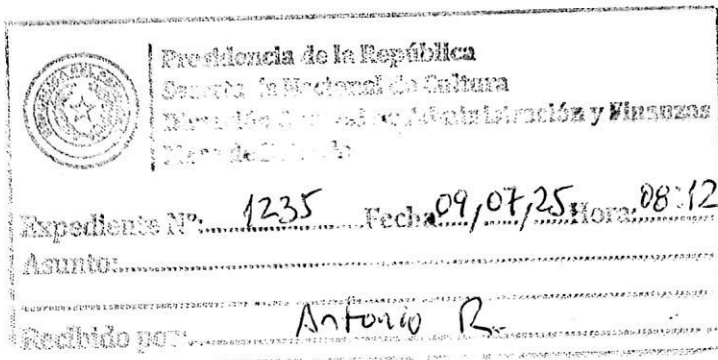 Presidencia de la República
Secretaría Nacional de Cultura
Dirección General de Administración y Finanzas
Mesa de Entrada
Expediente Nº: 1235 Fecha 09/07/25 Hora: 08:12
Asunto:
Recibido por: Antonio R.